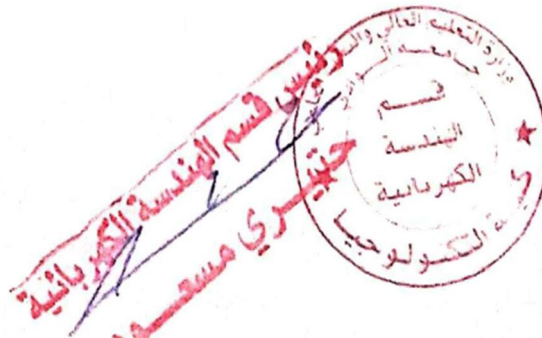 رئيس قسم الهندسة الكهربائية
مسعود
وزارة التعليم العالي
جامعة
قسم
الهندسة
الكهربائية
التكنولوجيا